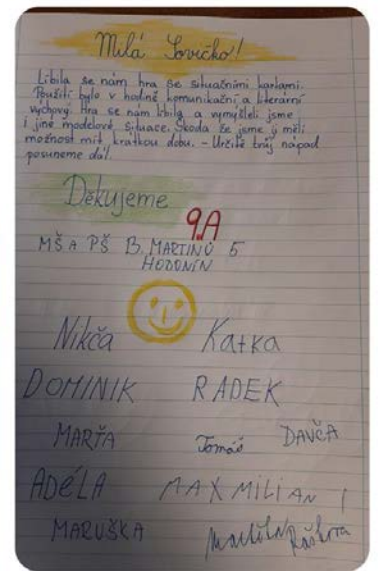 Milá Sovičko!
Libila se nám hra se situačními kartami.
Použití bylo v hodině komunikační a literární
výchovy. Hra se nám libila a vymýšleli jsme
i jiné modelové situace. Škoda že jsme ji měli
možnost mít krátkou dobu. - Určitě tvůj nápad
posuneme dál.
Děkujeme
9.A
MŠ A PŠ B. MARTINŮ 5
HODONÍN
Nikča Katka
DOMINIK RADEK
MARŤA Tomáš DAVČA
ADÉLA MAXMILIAN
MARUŠKA